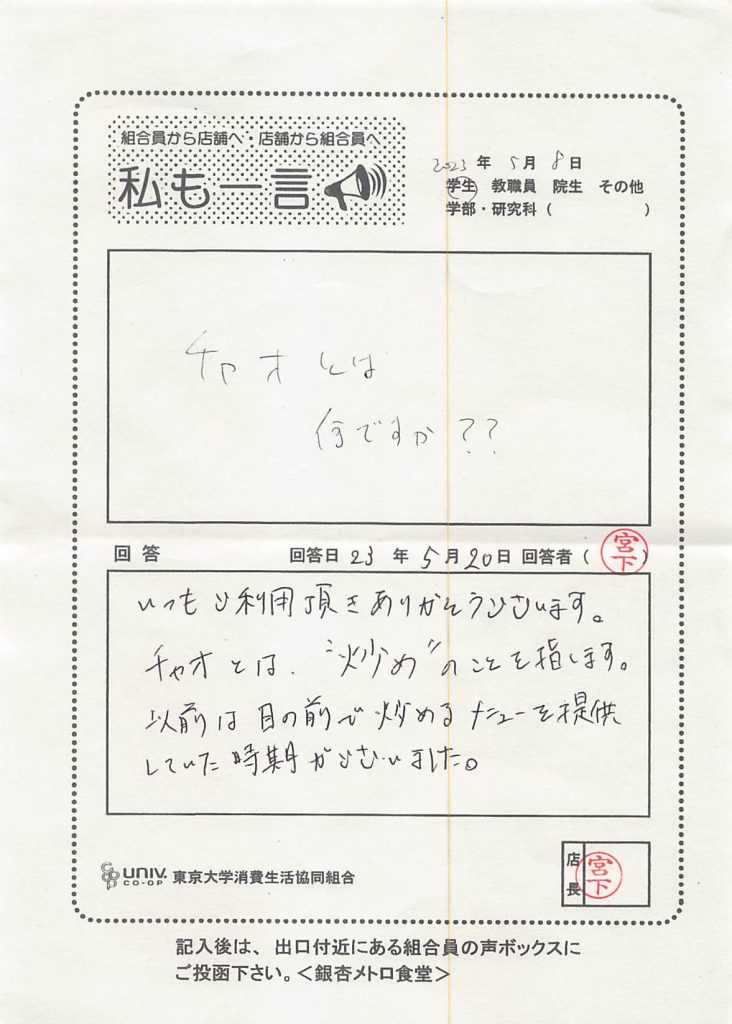 組合員から店舗へ・店舗から組合員へ
私も一言
2023 年 5 月 8 日
学生 教職員 院生 その他
学部・研究科 ( )
チャオとは
何ですか??
回答 回答日 23 年 5 月 20 日 回答者 ( 宮下 )
いつもご利用頂きありがとうございます。
チャオとは、"炒め"のことを指します。
以前は目の前で炒めるメニューを提供
していた時期がございました。
CO OP UNIV. CO-OP 東京大学消費生活協同組合
店長 宮下
記入後は、出口付近にある組合員の声ボックスに
ご投函下さい。<銀杏メトロ食堂>